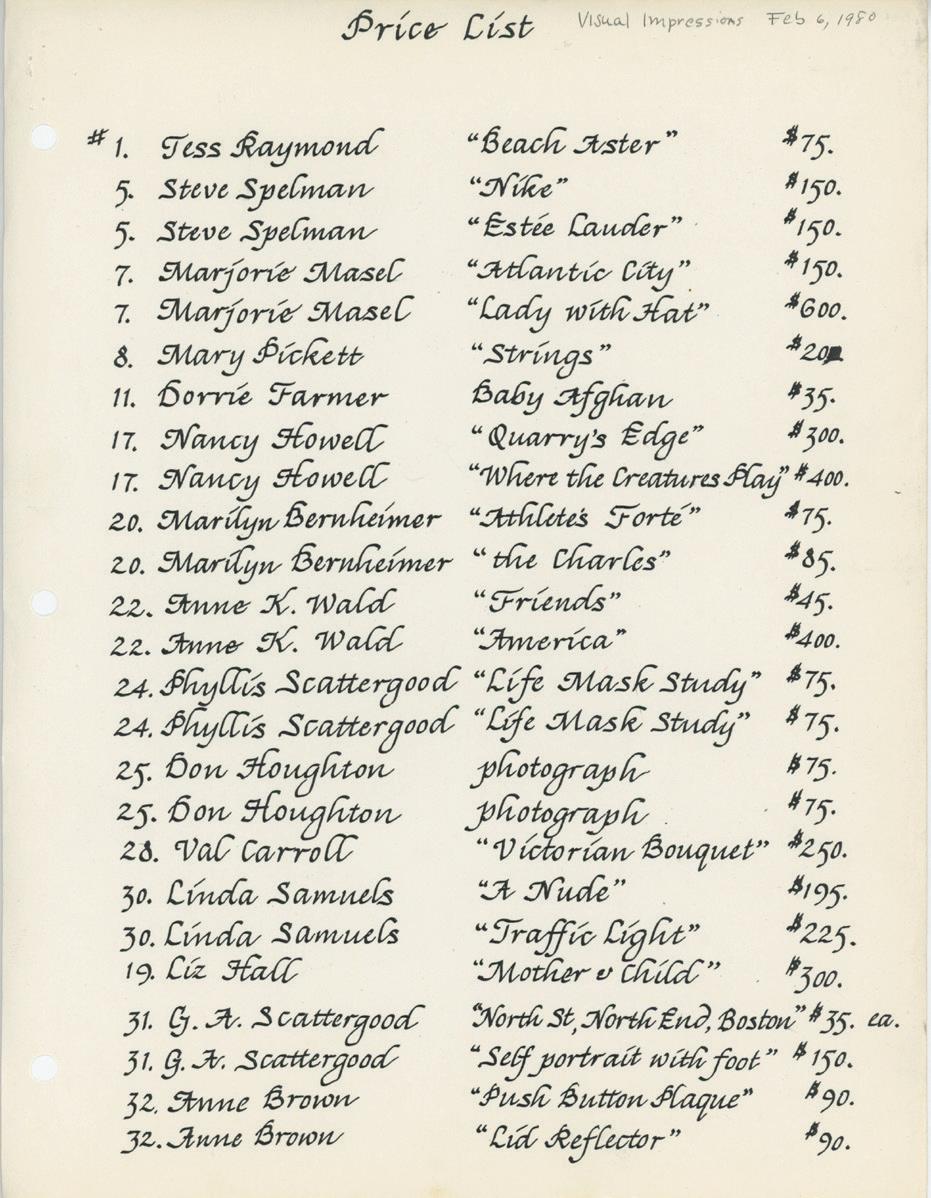 Price List Visual Impressions Feb 6, 1980
# 1. Tess Raymond "Beach Aster" $75.
5. Steve Spelman "Nike" $150.
5. Steve Spelman "Estée Lauder" $150.
7. Marjorie Masel "Atlantic City" $150.
7. Marjorie Masel "Lady with Hat" $600.
8. Mary Pickett "Strings" $20
11. Dorrie Farmer Baby Afghan $35.
17. Nancy Howell "Quarry's Edge" $300.
17. Nancy Howell "Where the Creatures Play" $400.
20. Marilyn Bernheimer "Athlete's Forté" $75.
20. Marilyn Bernheimer "the Charles" $85.
22. Anne K. Wald "Friends" $45.
22. Anne K. Wald "America" $400.
24. Phyllis Scattergood "Life Mask Study" $75.
24. Phyllis Scattergood "Life Mask Study" $75.
25. Don Houghton photograph $75.
25. Don Houghton photograph $75.
28. Val Carroll "Victorian Bouquet" $250.
30. Linda Samuels "A Nude" $195.
30. Linda Samuels "Traffic Light" $225.
19. Liz Hall "Mother & Child" $300.
31. G. A. Scattergood "North St, North End, Boston" $35. ea.
31. G. A. Scattergood "Self portrait with foot" $150.
32. Anne Brown "Push Button Plaque" $90.
32. Anne Brown "Lid Reflector" $90.